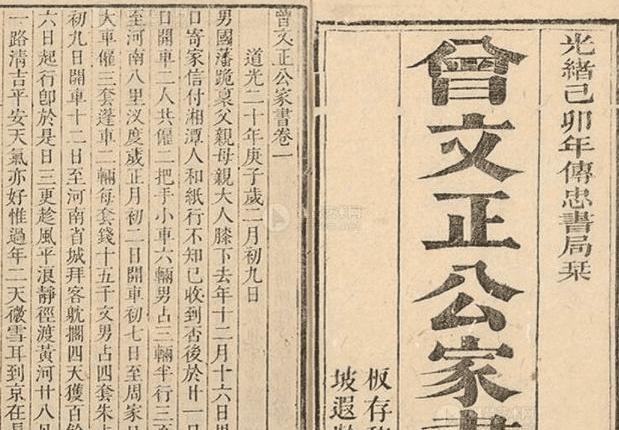 光緒己卯年傳忠書局栞
曾文正公家書
板存
坡遐
曾文正公家書卷一
道光二十年庚子歲二月初九日
男國藩跪稟父親母親大人膝下去年十二月十六日男
口寄家信付湘潭人和紙行不知已收到否後於廿一日
日開車二人共僱二把手小車六輛男占三輛半行三
至河南八里汊度歲正月初二日開車初七日至周家口
大車僱三套篷車二輛每套錢十五千文男占四套朱占
初九日開車十二日至河南省城拜客躭擱四天獲百餘
六日起行卽於是日三更趁風平浪靜徑渡黃河廿八日
一路清吉平安天氣亦好惟過年二天微雪耳到京在長